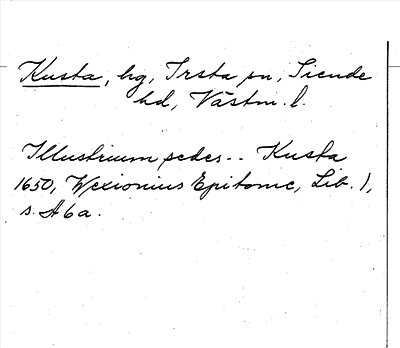 Kusta, hg, Irsta sn, Siende
hd, Västm. l.
Illustrium sedes -- Kusta
1650, Wexionius Epitome, Lib. 1,
s. A6a.